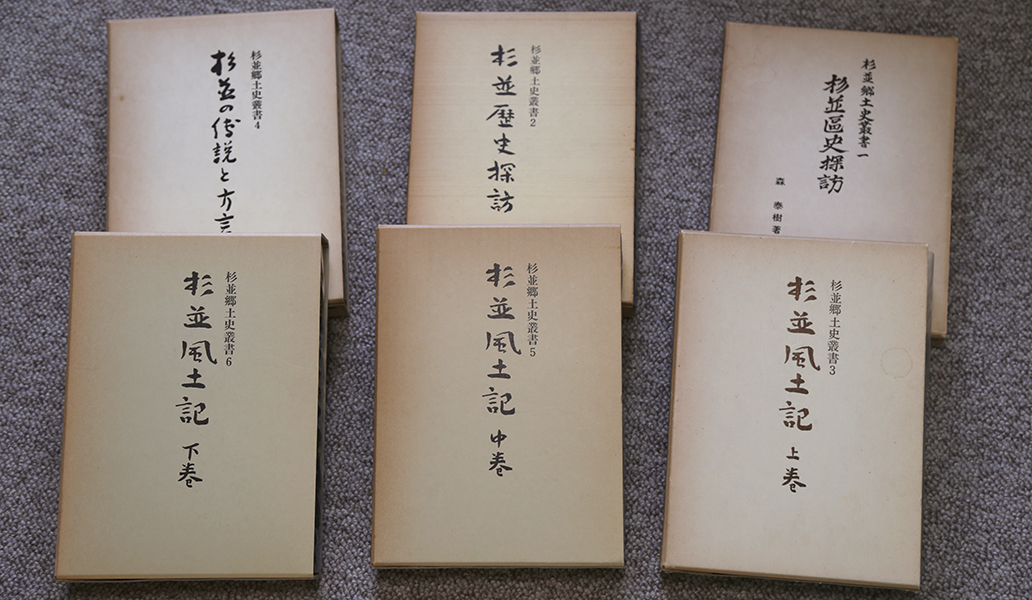 杉並郷土史叢書一
杉並區史探訪
森泰樹著
杉並郷土史叢書2
杉並歴史探訪
杉並郷土史叢書4
杉並の伝説と方言
杉並郷土史叢書3
杉並風土記
上巻
杉並郷土史叢書5
杉並風土記
中巻
杉並郷土史叢書6
杉並風土記
下巻